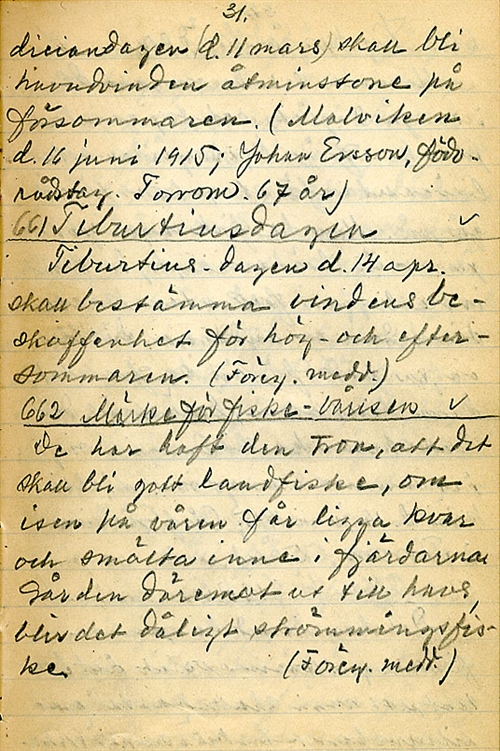 31.
diciondagen (d. 11 mars) skall bli
huvudvinden åtminstone på
försommaren. (Malviken
d. 16 juni 1915; Johan Ersson, födo-
rådstag. Torrom. 67 år)
661 Tiburtiusdagen ✓
Tiburtius-dagen d. 14 apr.
skall bestämma vindens be-
skaffenhet för hög- och efter-
sommaren. (Föreg. medd.)
662 Märke för fiske - vårisen ✓
De har haft den tron, att det
skall bli gott landfiske, om
isen på våren får ligga kvar
och smälta inne i fjärdarna
Går den däremot ut till havs,
blir det dåligt strömmingsfis-
ke. (Föreg. medd.)